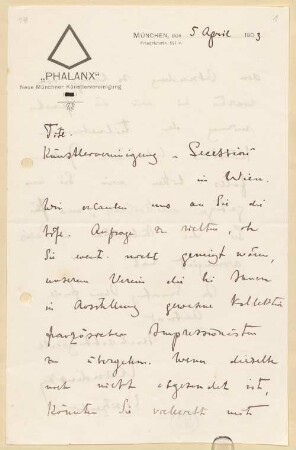 MÜNCHEN, DEN 5 April 1903
„PHALANX“
Neue Münchner Künstlervereinigung
Tit.
Künstlervereinigung „Secession
in Wien.
Wir erlauben uns an Sie die
höfl. Anfrage zu richten, ob
Sie event. nicht geneigt wären,
unserem Verein die bei Ihnen
in Ausstellung gewesene Kollektion
französischer Impressionisten
zu übergeben. Wenn dieselbe
noch nicht abgesendet ist,
könnten Sie vielleicht mit